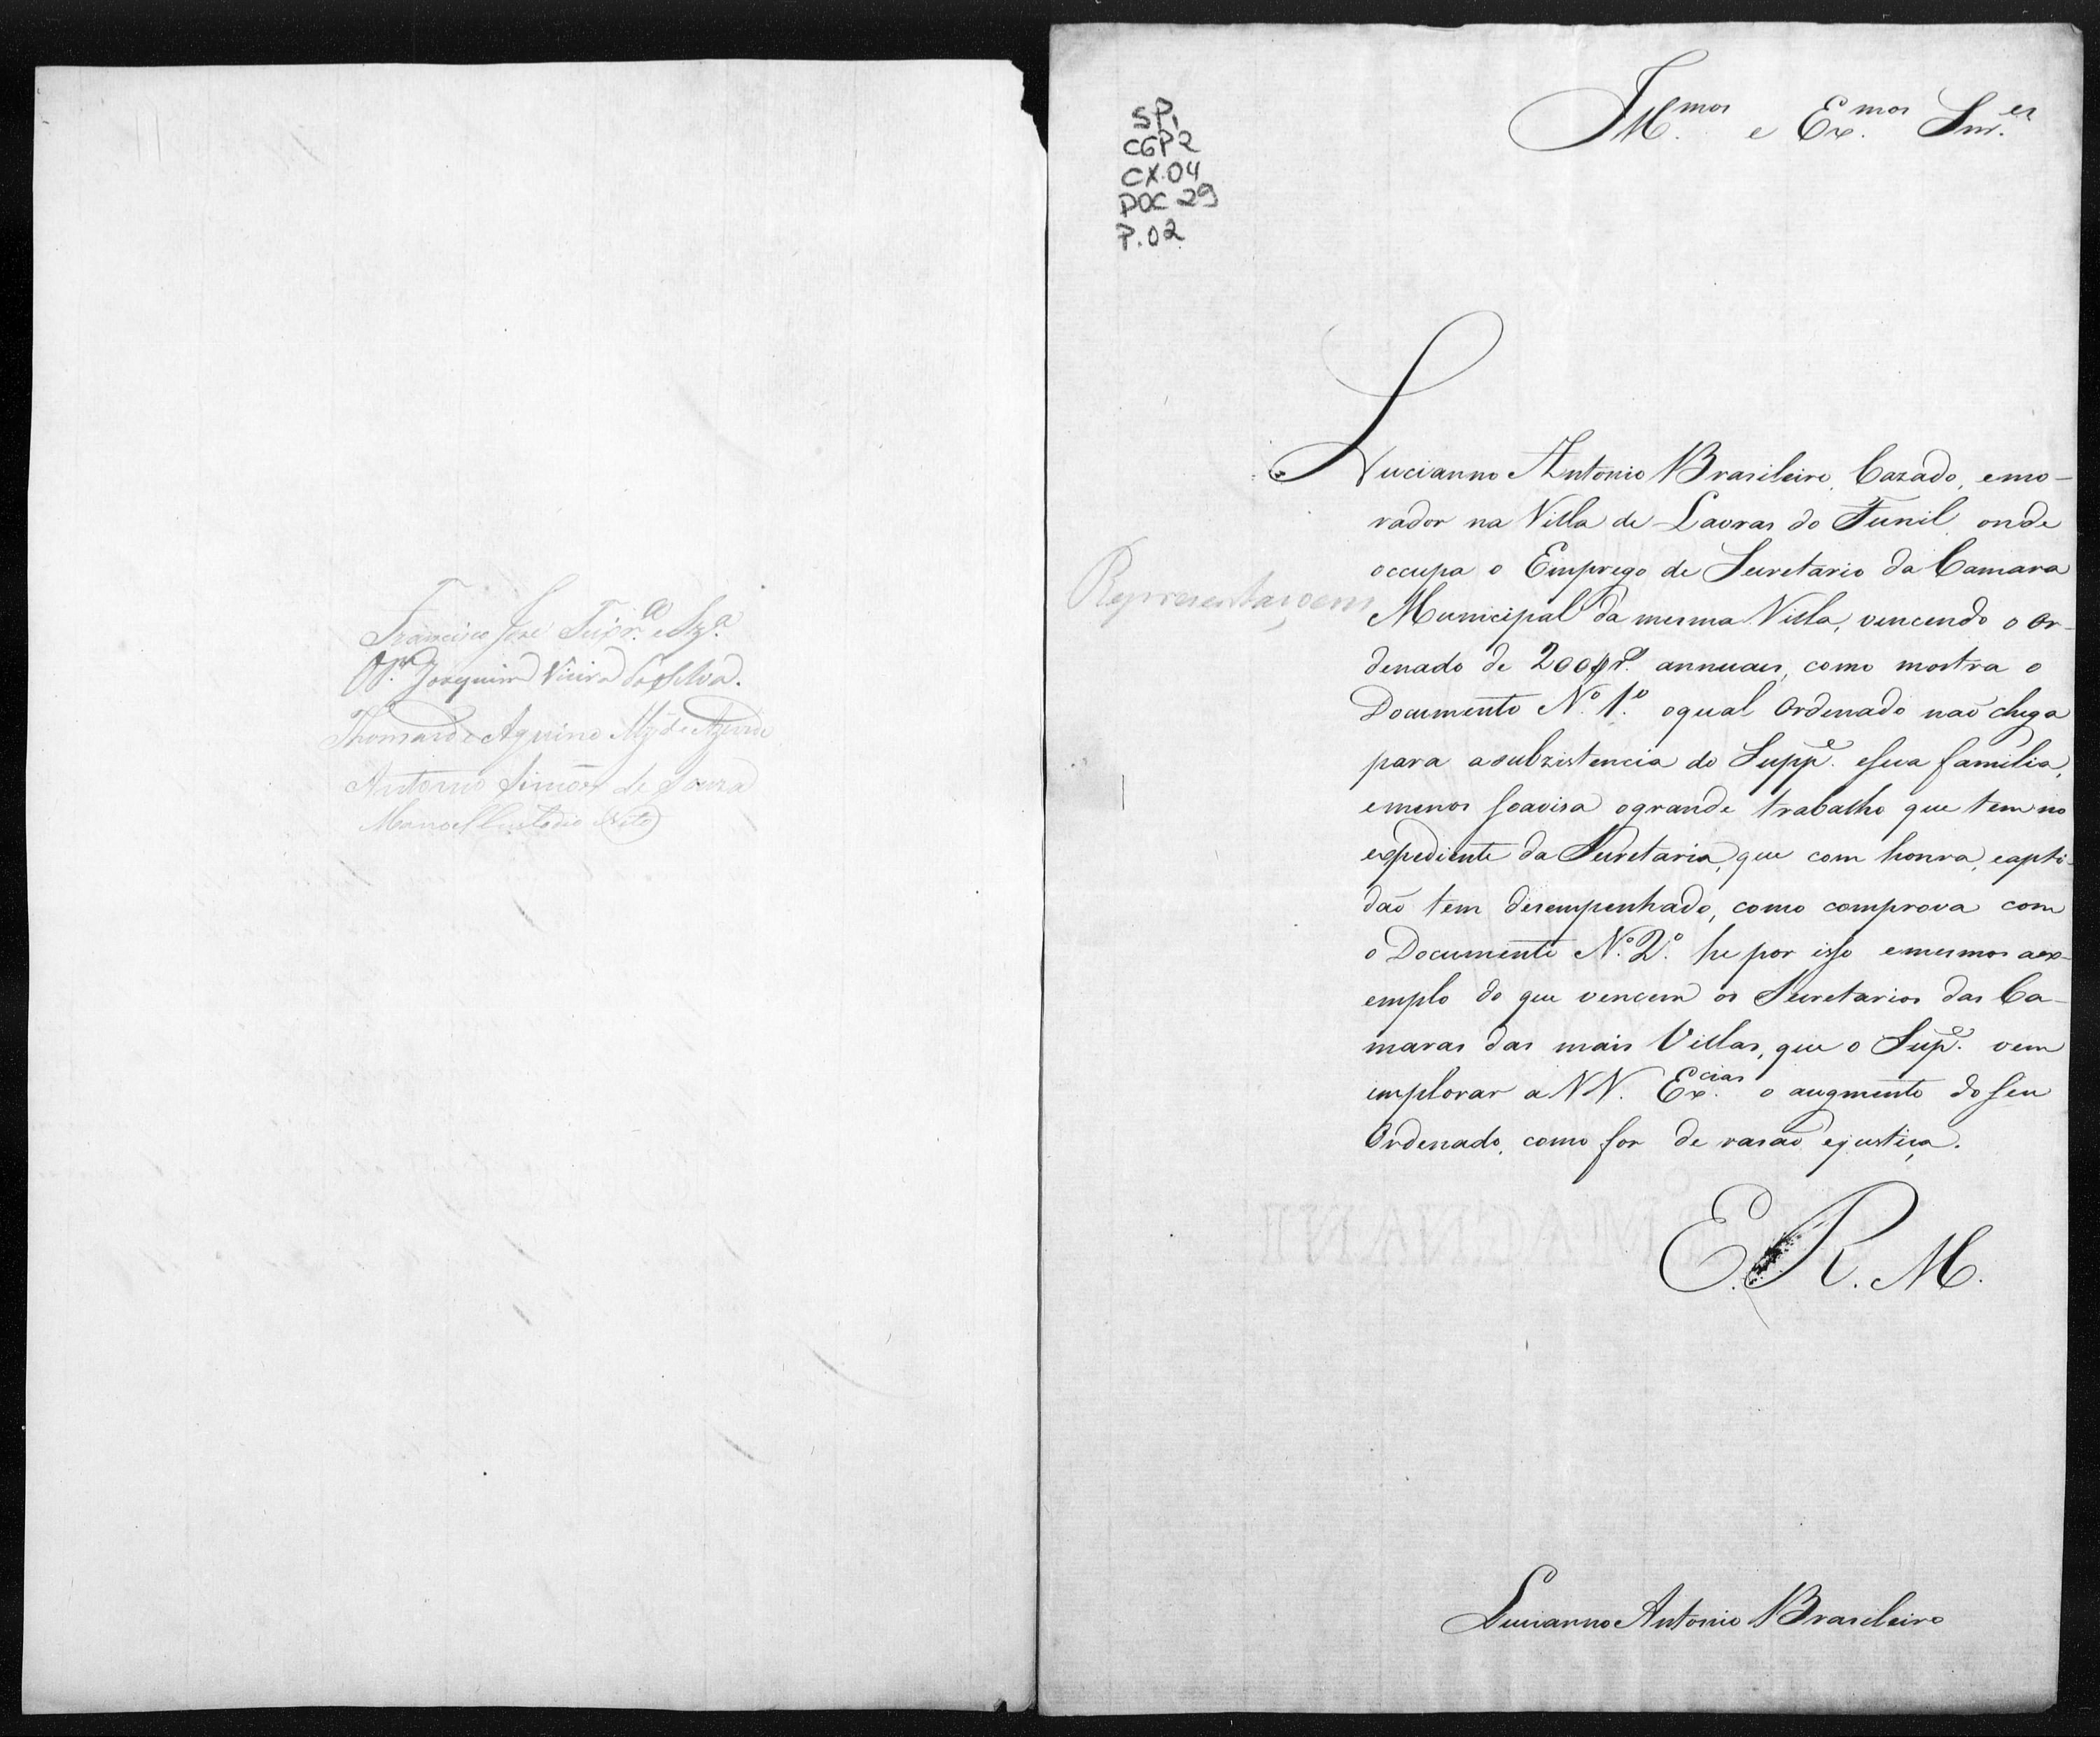 Francisco José Teixr.ª e Sz.ª
P.e Joaquim Vieira da Silva.
Thomas de Aquino Alz' de Azevdo
Antonio Simões de Souza
Manoel Custodio Neto
SP1
CGP2
CX.04
DOC 29
P.02
Ill.mos e Ex.mos Snr.es
Lucianno Antonio Brasileiro, Cazado, emo-
rador na Villa de Lavras do Funil, onde
occupa o Emprego de Secretario da Camara
Representaçoens
Municipal da mesma Villa, vencendo o or-
denado de 200$r.s annuaes, como mostra o
Documento N.º 1.º oqual Ordenado naõ chega
para asubzistencia do Supp.e esua familia,
emenos soavisa ogrande trabalho que tem no
expediente da Secretaria, que com honra, eapti-
daõ tem desempenhado, como comprova com
o Documento N.º 2.º he por isso emesmos aex-
emplo do que vencem os Secretarios das Ca-
maras das mais Villas, que o Sup.e vem
implorar a VV. Ex.cias o augmento do seu
Ordenado, como for de rasaõ ejustiça.
E. R. M.
Lucianno Antonio Brasileiro